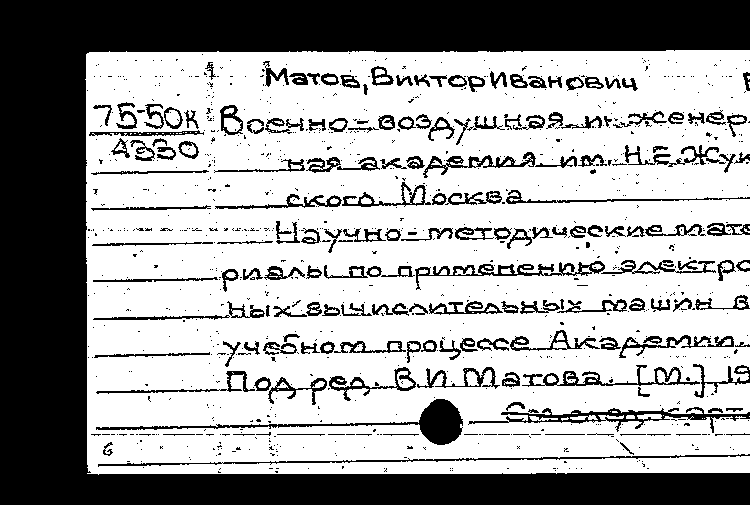 Матов, Виктор Иванович
75-50к
А330
Военно-воздушная инженер
ная академия им. Н.Е. Жук
ского. Москва.
Научно-методические мате
риалы по применению электро
ных вычислительных машин в
учебном процессе Академии.
Под ред. В.И. Матова. [М.], 19
См. след. карт
6